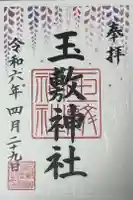 奉拝
玉敷神社
令和六年四月二十九日